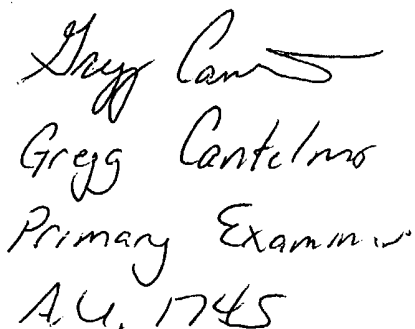 Gregg Cant
Gregg Cantelmo
Primary Examiner
A.U. 1745